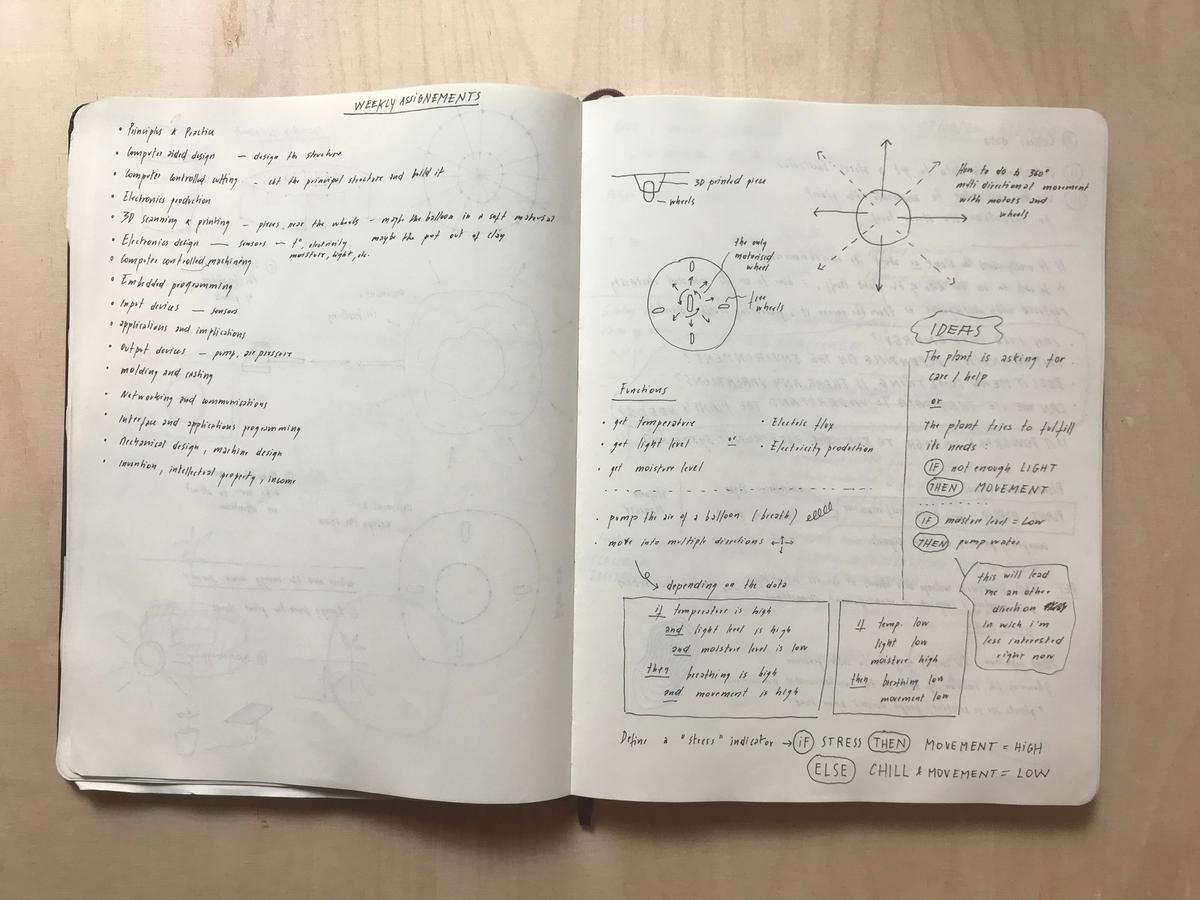 WEEKLY ASSIGNEMENTS
• Principles & Practice
• Computer aided design — design the structure
• Computer controlled cutting - cut the principal structure and build it
• Electronics production
• 3D scanning & printing - pieces near the wheels - maybe the balloon in a soft material
maybe the pot out of clay
• Electronics design — sensors — t°, electricity
moisture, light, etc.
• Computer controlled machining
• Embedded programming
• Input devices — sensors
• applications and implications
• Output devices — pump, air pressure
• molding and casting
• Networking and communications
• Interface and applications programming
• Mechanical design, machine design
• Invention, intellectual property, income
3D printed piece
wheels
How to do a 360°
multi directional movement
with motors and
wheels
the only
motorised
wheel
free
wheels
Functions
• get temperature
• get light level or
• get moisture level
• Electric flux
• Electricity production
• pump the air of a balloon (breath)
• move into multiple directions
depending on the data
if temperature is high
and light level is high
and moisture level is low
then breathing is high
and movement is high
if temp. low
light low
moisture high
then breathing low
movement low
IDEAS
The plant is asking for
care / help
or
The plant tries to fulfill
its needs :
IF not enough LIGHT
THEN MOVEMENT
IF moisture level = Low
THEN pump water
this will lead
me an other
direction
in wich i'm
less interested
right now
Define a "stress" indicator → IF STRESS THEN MOVEMENT = HIGH
ELSE CHILL & MOVEMENT = LOW